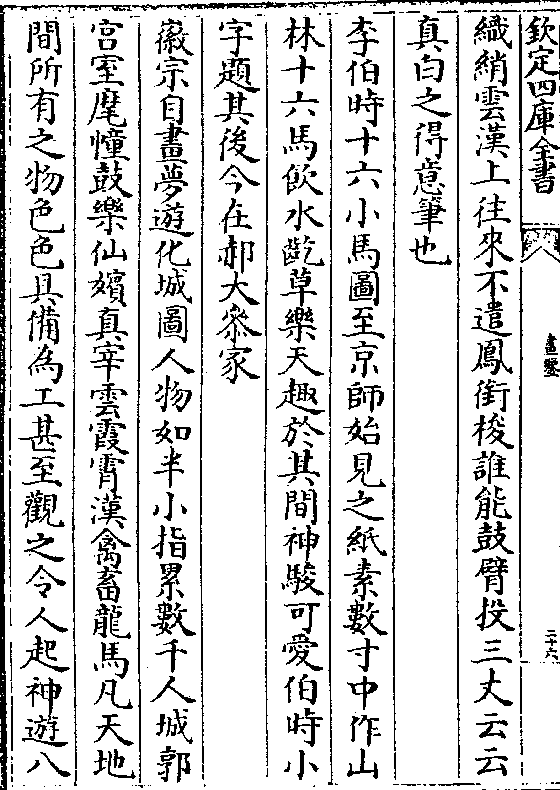 欽定四庫全書
畫鑒
三十六
織綃雲漢上往來不遣鳳銜梭誰能鼓臂投三丈云云
真白之得意筆也
李伯時十六小馬圖至京師始見之紙素數寸中作山
林十六馬飲水齕草樂天趣於其間神駿可愛伯時小
字題其後今在郝大叅家
徽宗自畫夢遊化城圖人物如半小指累數千人城郭
宫室麾幢鼓樂仙嬪真宰雲霞霄漢禽畜龍馬凡天地
間所有之物色色具備為工甚至觀之令人起神遊八